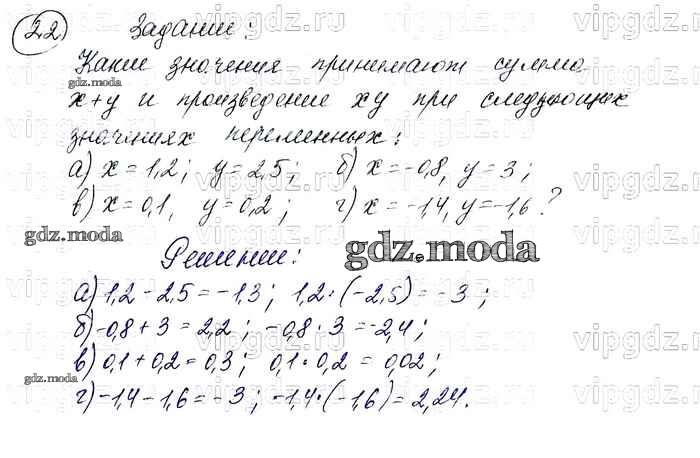 22) Задание:
Какие значения принимают сумма
x+y и произведение xy при следующих
значениях переменных:
а) x = 1,2; y = 2,5; б) x = -0,8, y = 3;
в) x = 0,1, y = 0,2; г) x = -1,4, y = -1,6?
Решение:
а) 1,2 - 2,5 = -1,3; 1,2·(-2,5) = -3;
б) -0,8 + 3 = 2,2; -0,8·3 = -2,4;
в) 0,1 + 0,2 = 0,3; 0,1·0,2 = 0,02;
г) -1,4 - 1,6 = -3; -1,4·(-1,6) = 2,24.
gdz.moda
gdz.moda
gdz.moda
gdz.moda
vipgdz.ru
vipgdz.ru
vipgdz.ru
vipgdz.ru
vipgdz.ru
vipgdz.ru
vipgdz.ru